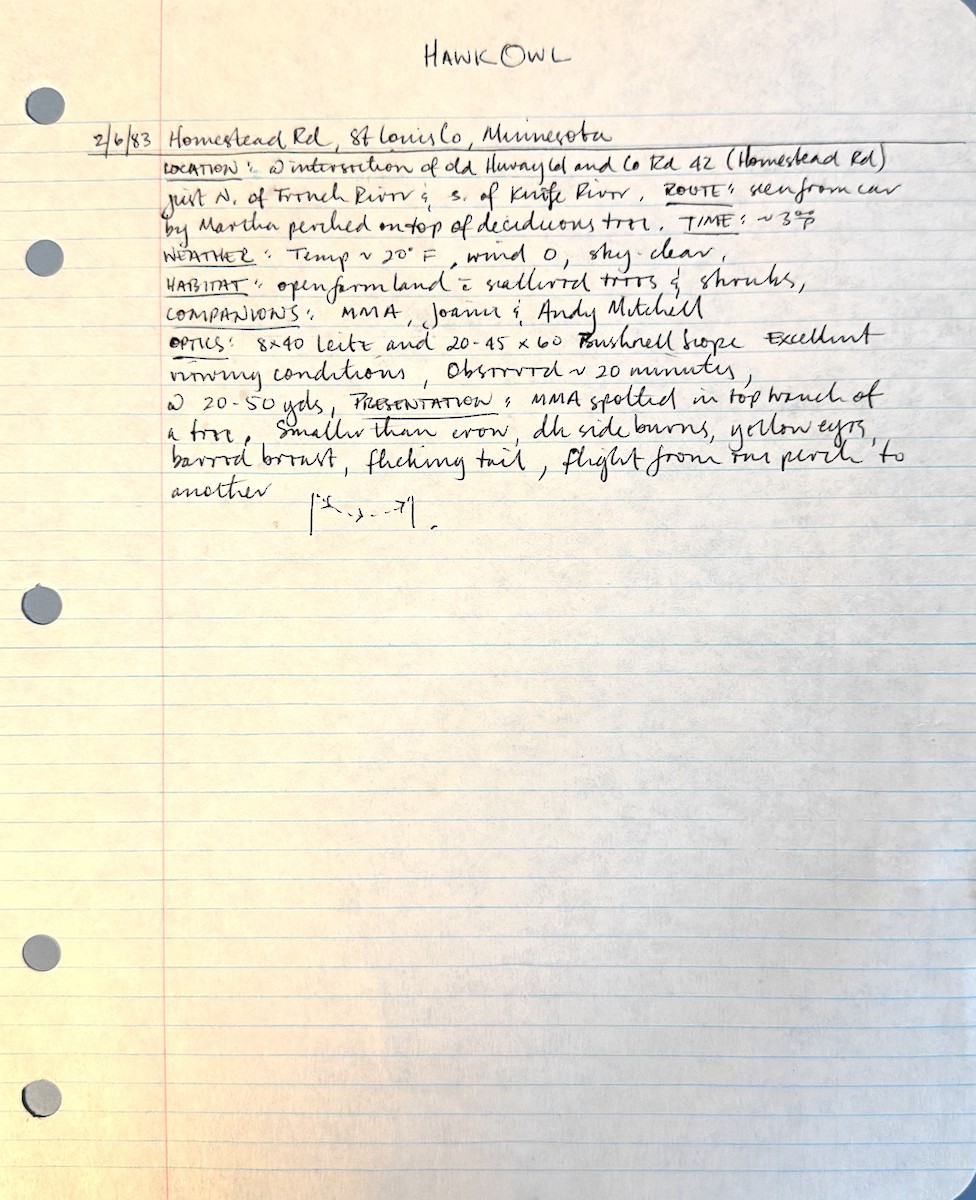 HAWK OWL
2/6/83 Homestead Rd, St Louis Co, Minnesota
LOCATION: @ intersection of old Hwy 61 and Co Rd 42 (Homestead Rd)
just N. of French River & S. of Knife River. ROUTE: seen from car
by Martha perched on top of deciduous tree. TIME: ~3:00p
WEATHER: Temp ~ 20° F, wind 0, sky-clear,
HABITAT: open farmland c̄ scattered trees & shrubs,
COMPANIONS: MMA, Joann & Andy Mitchell
OPTICS: 8x40 Leitz and 20-45 x 60 Bushnell Scope Excellent
viewing conditions, Observed ~ 20 minutes,
@ 20-50 yds, PRESENTATION: MMA spotted in top branch of
a tree. Smaller than crow, dk side burns, yellow eyes,
barred breast, flicking tail, flight from one perch to
another